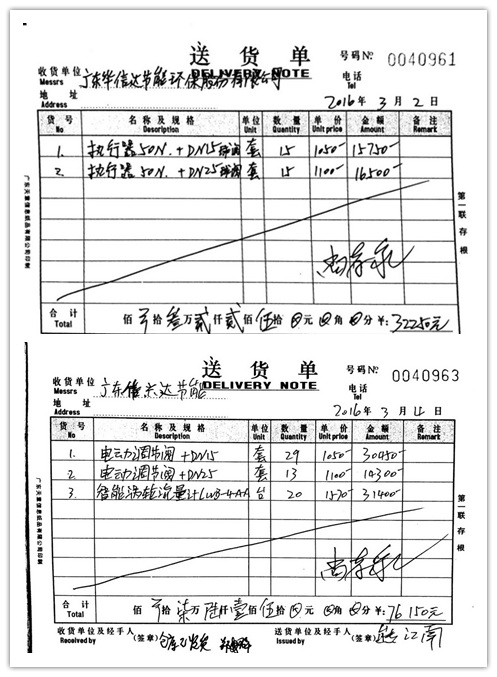 送货单
DELIVERY NOTE
号码 No. 0040961
收货单位 Messrs 广东华信达节能环保股份有限公司
电话 Tel
地址 Address
2016年3月2日
货号 No 名称及规格 Description 单位 Unit 数量 Quantity 单价 Unit price 金额 Amount 备注 Remark
1. 执行器50N. +DN15球阀 套 15 1050- 15750-
2. 执行器50N. +DN25球阀 套 15 1100- 16500-
合计 Total 佰 拾叁万贰仟贰佰伍拾⊗元⊗角⊗分 ¥: 32250元
第一联存根
广东天章信息纸品有限公司印制
送货单
DELIVERY NOTE
号码 No. 0040963
收货单位 Messrs 广东 达节能
电话 Tel
地址 Address
2016年3月 日
货号 No 名称及规格 Description 单位 Unit 数量 Quantity 单价 Unit price 金额 Amount 备注 Remark
1. 电动调节阀 +DN15 套 29 1050- 30450-
2. 电动调节阀 +DN25 套 13 1100- 14300-
3. 智能涡轮流量计 台 20 1570- 31400-
合计 Total 佰 拾柒万陆仟壹佰伍拾⊗元⊗角⊗分 ¥: 76150元
第一联存根
广东天章信息纸品有限公司印制
收货单位及经手人 Received by (签章) 仓库已发货
送货单位及经手人 Issued by (签章) 熊江南